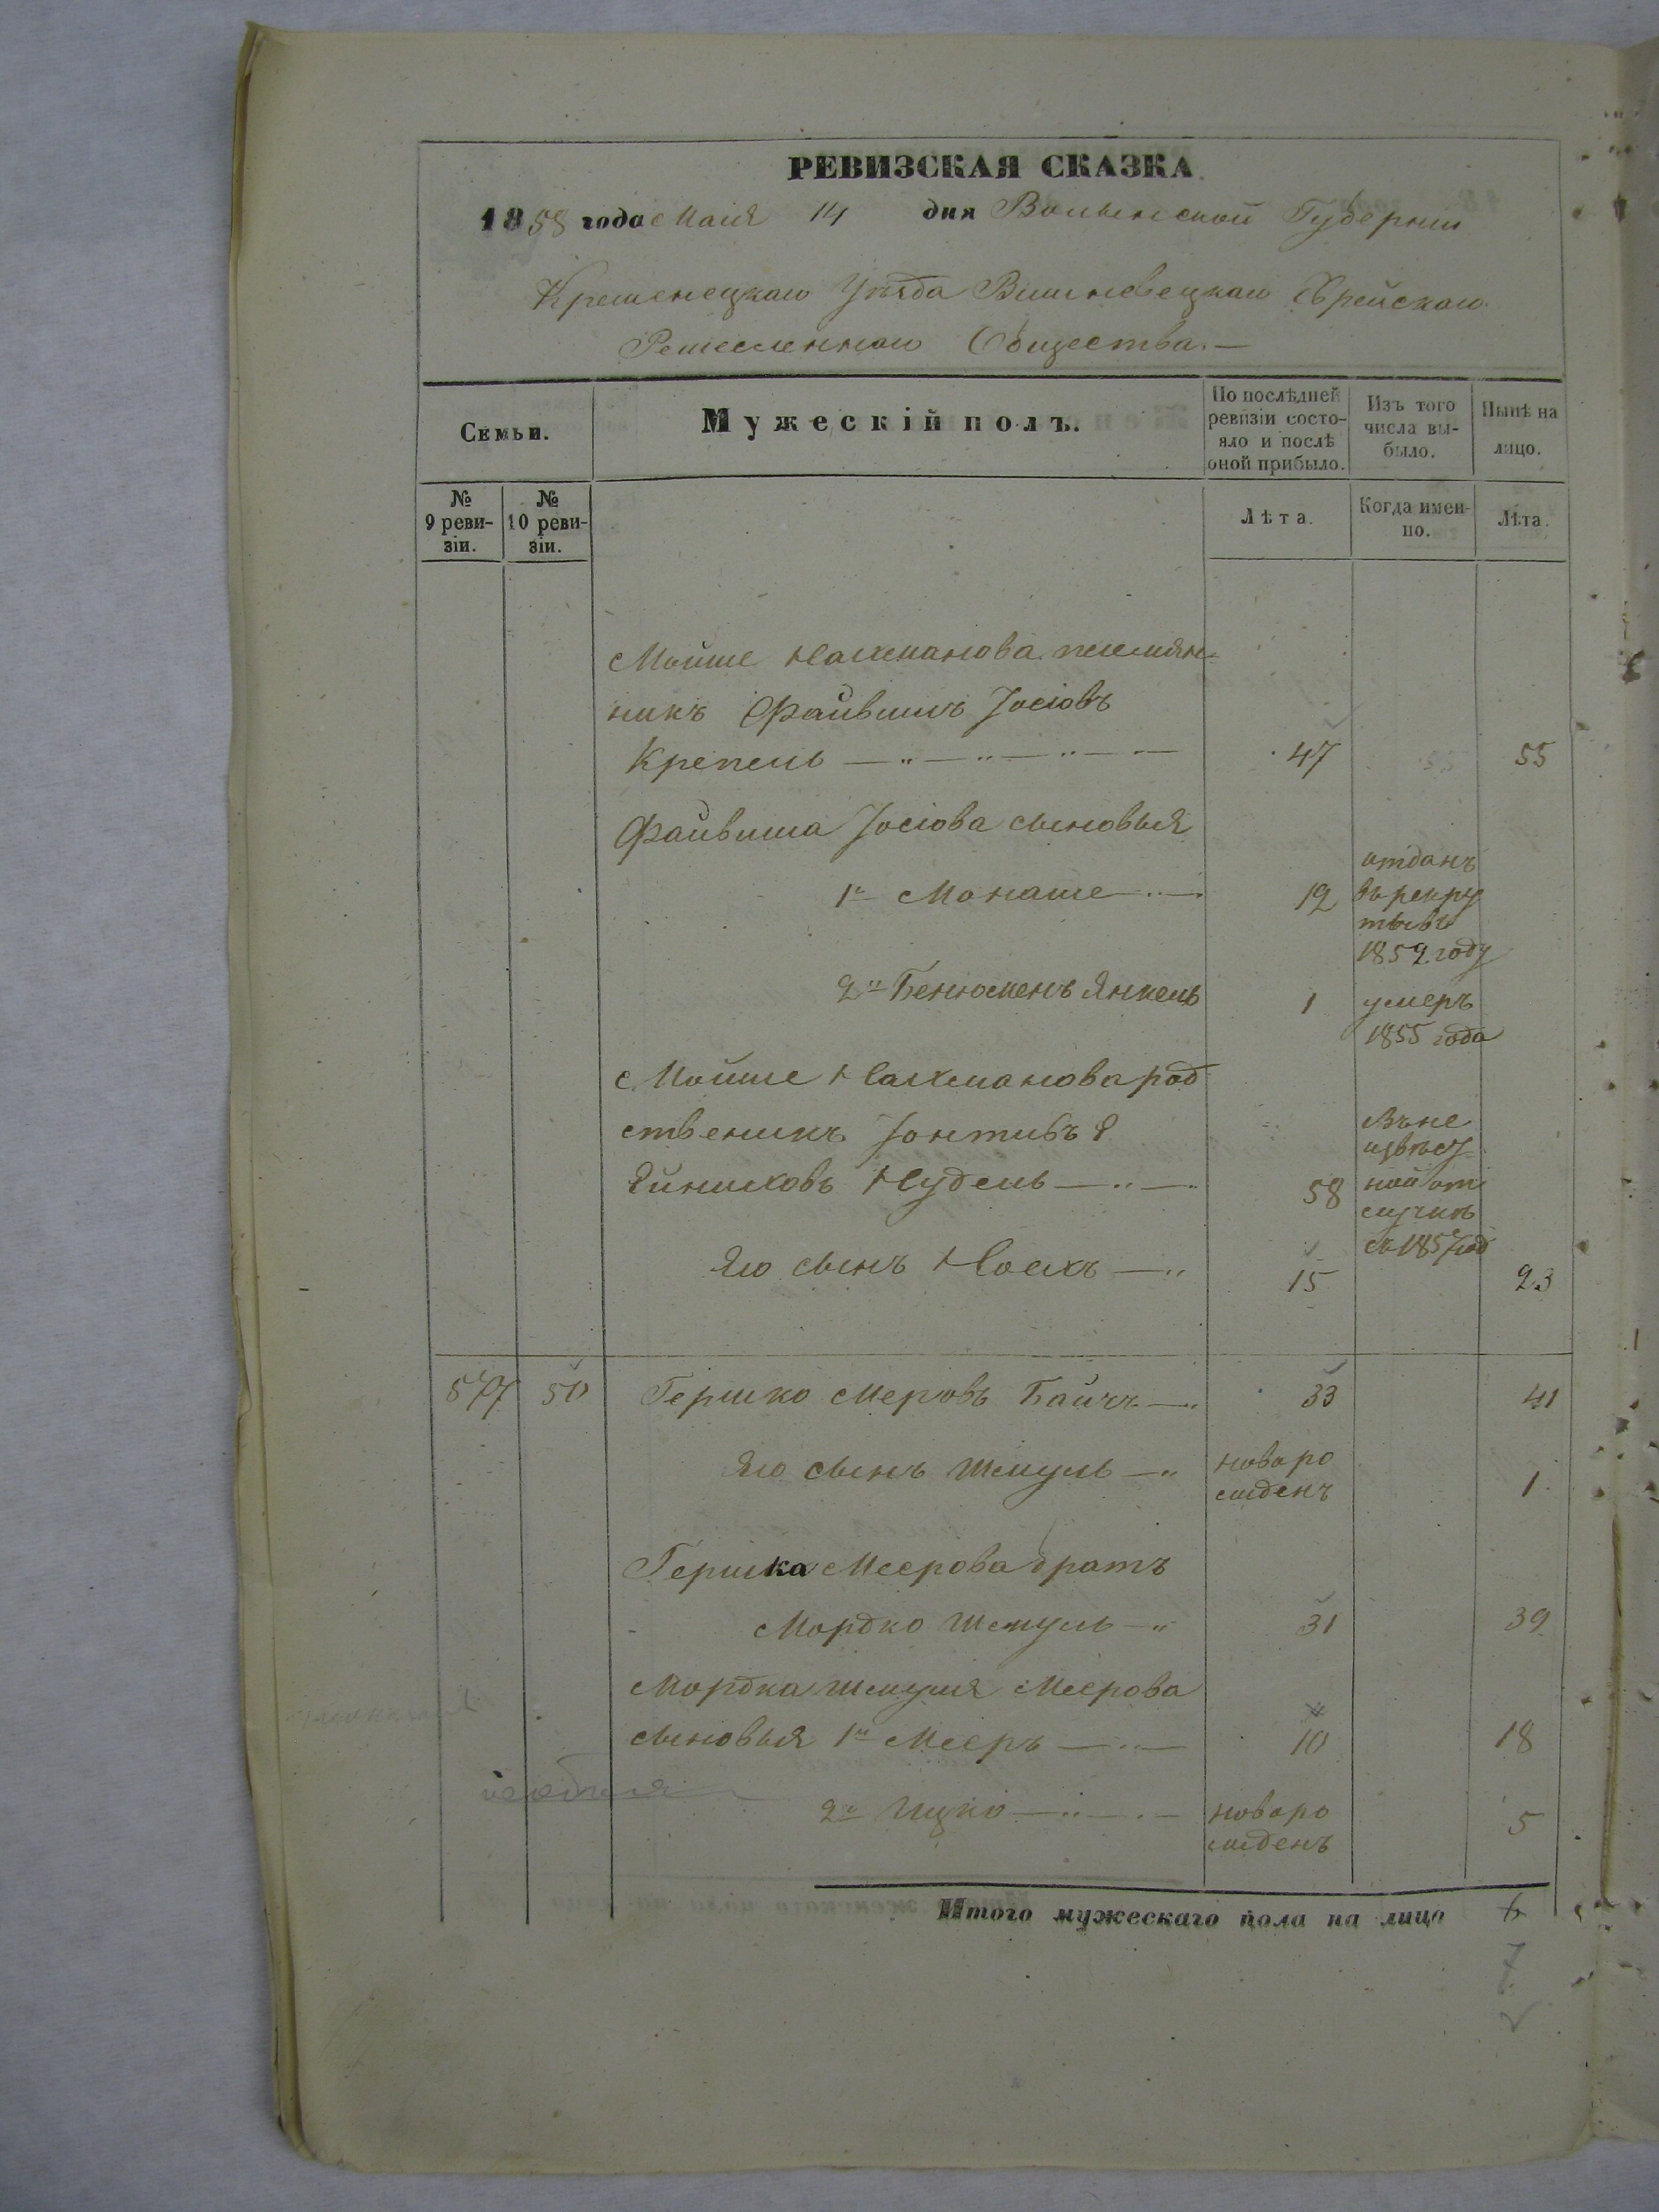 РЕВИЗСКАЯ СКАЗКА
1858 года Маія 14 дня Волынской Губернии
Кременецкаго Уѣзда Вишневецкаго Еврейскаго
Ремесленнаго Общества.—
Семьи.
Мужескій полъ.
По послѣдней ревизіи состояло и послѣ оной прибыло.
Изъ того числа выбыло.
Нынѣ на лицо.
№ 9 ревизіи.
№ 10 ревизіи.
Лѣта.
Когда именно.
Лѣта.
Мойше Нахманова племян-
никъ Файвишъ Іосіовъ
Крепель 47 55
Файвиша Іосіова сыновья
1й Монаше 12 отданъ
въ рекру
ты въ
1852 году
2й Бенюменъ Янкель 1 умеръ
1855 года
Мойше Нахманова род
ственикъ Іонтивъ
Нудель 58
въ не
извѣст
ной от
лучкѣ
съ 1857 год
Его сынъ Носхъ 15 23
577 50 Гершко Меровъ Байчъ 33 41
Его сынъ Шмуль новоро
жденъ 1
Гершка Меерова братъ
Мордко Шмуль 31 39
Мордка Шмуля Меерова
сыновья 1й Мееръ 10 18
2й Ицко новоро
жденъ 5
Итого мужескаго пола на лицо 6
7